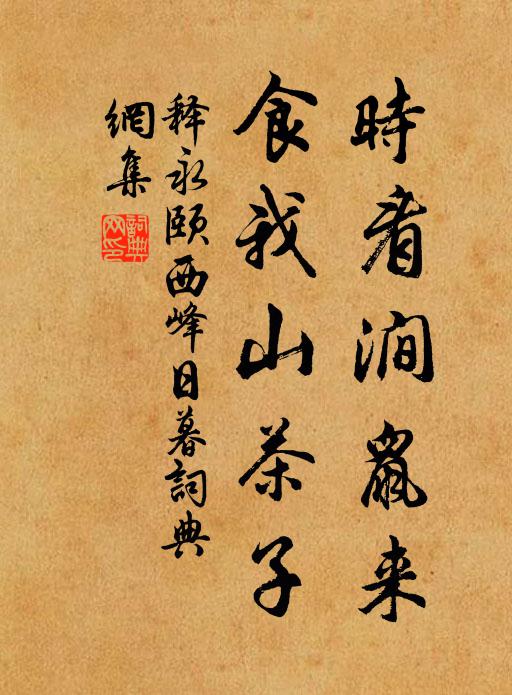 時看澗鼠来
食我山茶子
释永颐西峰日暮詞典
網集
詞典
网印